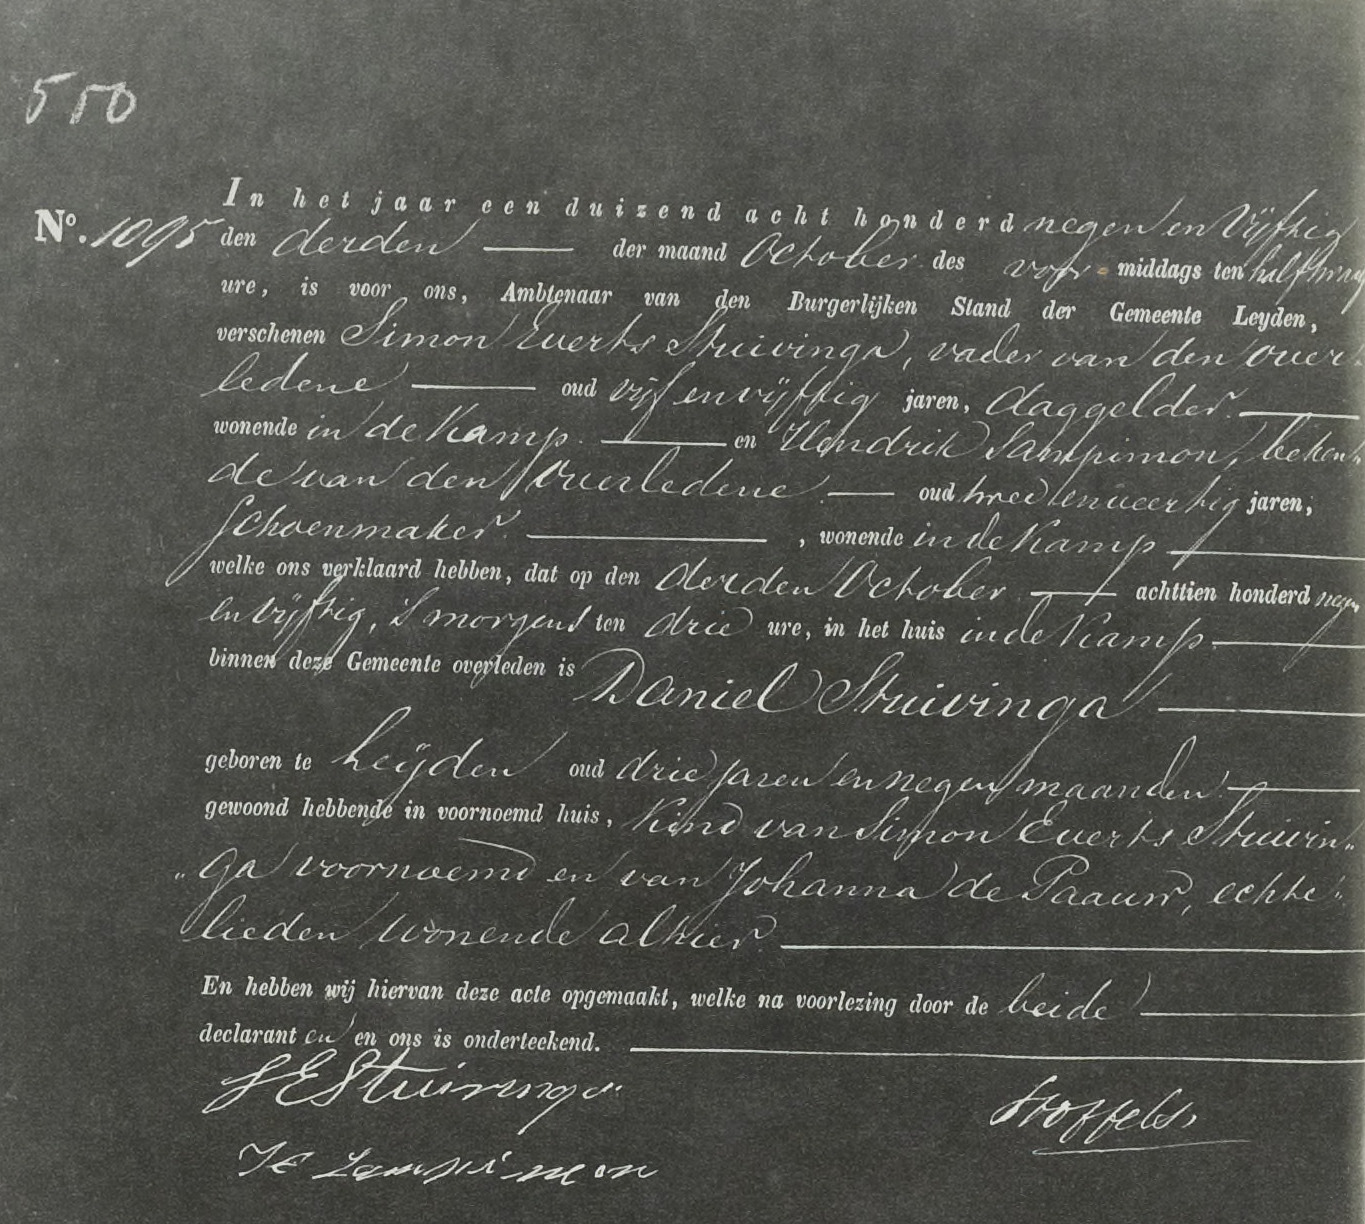 550
In het jaar een duizend acht honderd negen en Vijftig
No. 1095 den derden der maand October des voor middags ten half
ure, is voor ons, Ambtenaar van den Burgerlijken Stand der Gemeente Leyden,
verschenen Simon Everts Stuivinga, vader van den over
ledene oud vijf en vijftig jaren, daggelder.
wonende in de Kamp. en Hendrik Lampimon, beken„
de van den Overledene oud twee en veertig jaren,
Schoenmaker. , wonende in de Kamp
welke ons verklaard hebben, dat op den derden October achttien honderd negen
en vijftig, 's morgens ten drie ure, in het huis in de Kamp
binnen deze Gemeente overleden is Daniel Stuivinga
geboren te Leijden oud drie jaren en negen maanden.
gewoond hebbende in voornoemd huis, Kind van Simon Everts Stuivin„
„ga voornoemd en van Johanna de Paauw, echte„
lieden wonende alhier.
En hebben wij hiervan deze acte opgemaakt, welke na voorlezing door de beide
declarant en en ons is onderteekend.
S E Stuivinga
Stoffels
H Lampimon